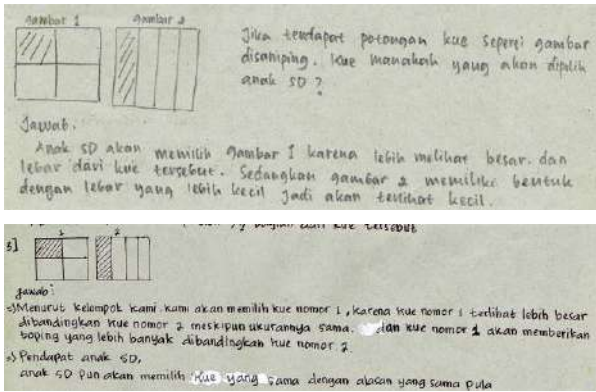 gambar 1 gambar 2
Jika terdapat potongan kue seperti gambar
disamping. Kue manakah yang akan dipilih
anak SD?
Jawab.
Anak SD akan memilih gambar 1 karena lebih melihat besar dan
lebar dari kue tersebut. Sedangkan gambar 2 memiliki bentuk
dengan lebar yang lebih kecil jadi akan terlihat kecil.
kue tersebut
3] 1 2
Jawab:
=) Menurut kelompok kami kami akan memilih kue nomor 1, karena kue nomor 1 terlihat lebih besar
dibandingkan kue nomor 2 meskipun ukurannya sama. dan kue nomor 1 akan memberikan
toping yang lebih banyak dibandingkan kue nomor 2.
=) Pendapat anak SD,
anak SD pun akan memilih kue yang sama dengan alasan yang sama pula